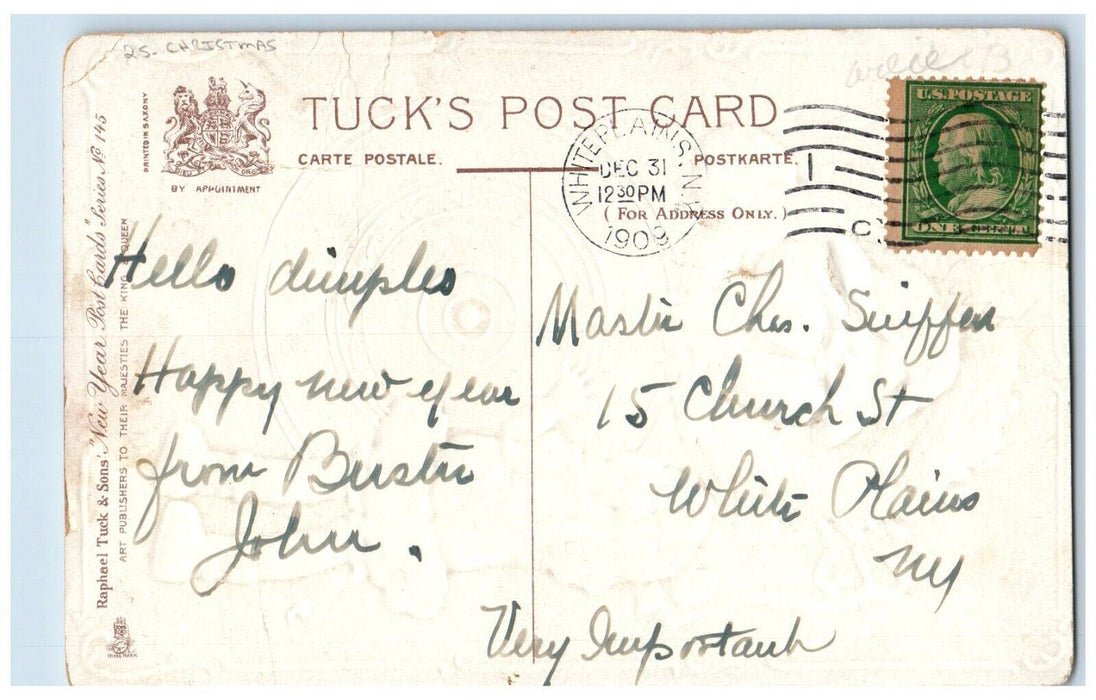 25- CHRISTMAS
TUCK'S POST CARD
CARTE POSTALE.
POSTKARTE.
(FOR ADDRESS ONLY.)
PRINTED IN SAXONY
BY APPOINTMENT
WHITE PLAINS, N.Y.
DEC 31
12 30 PM
1909
U.S. POSTAGE
ONE
Raphael Tuck & Sons' "New Year Post Cards" Series No 145
ART PUBLISHERS TO THEIR MAJESTIES THE KING QUEEN
Hello dimples
Happy new year
from Buster
John.
Master Chas. Sniffen
15 Church St
White Plains
NY
Very Important